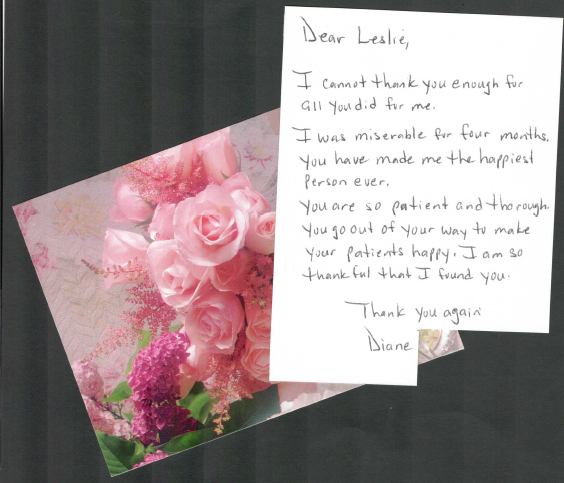 Dear Leslie,
I cannot thank you enough for
all you did for me.
I was miserable for four months.
You have made me the happiest
person ever.
You are so patient and thorough.
You go out of your way to make
your patients happy. I am so
thankful that I found you.
Thank you again
Diane